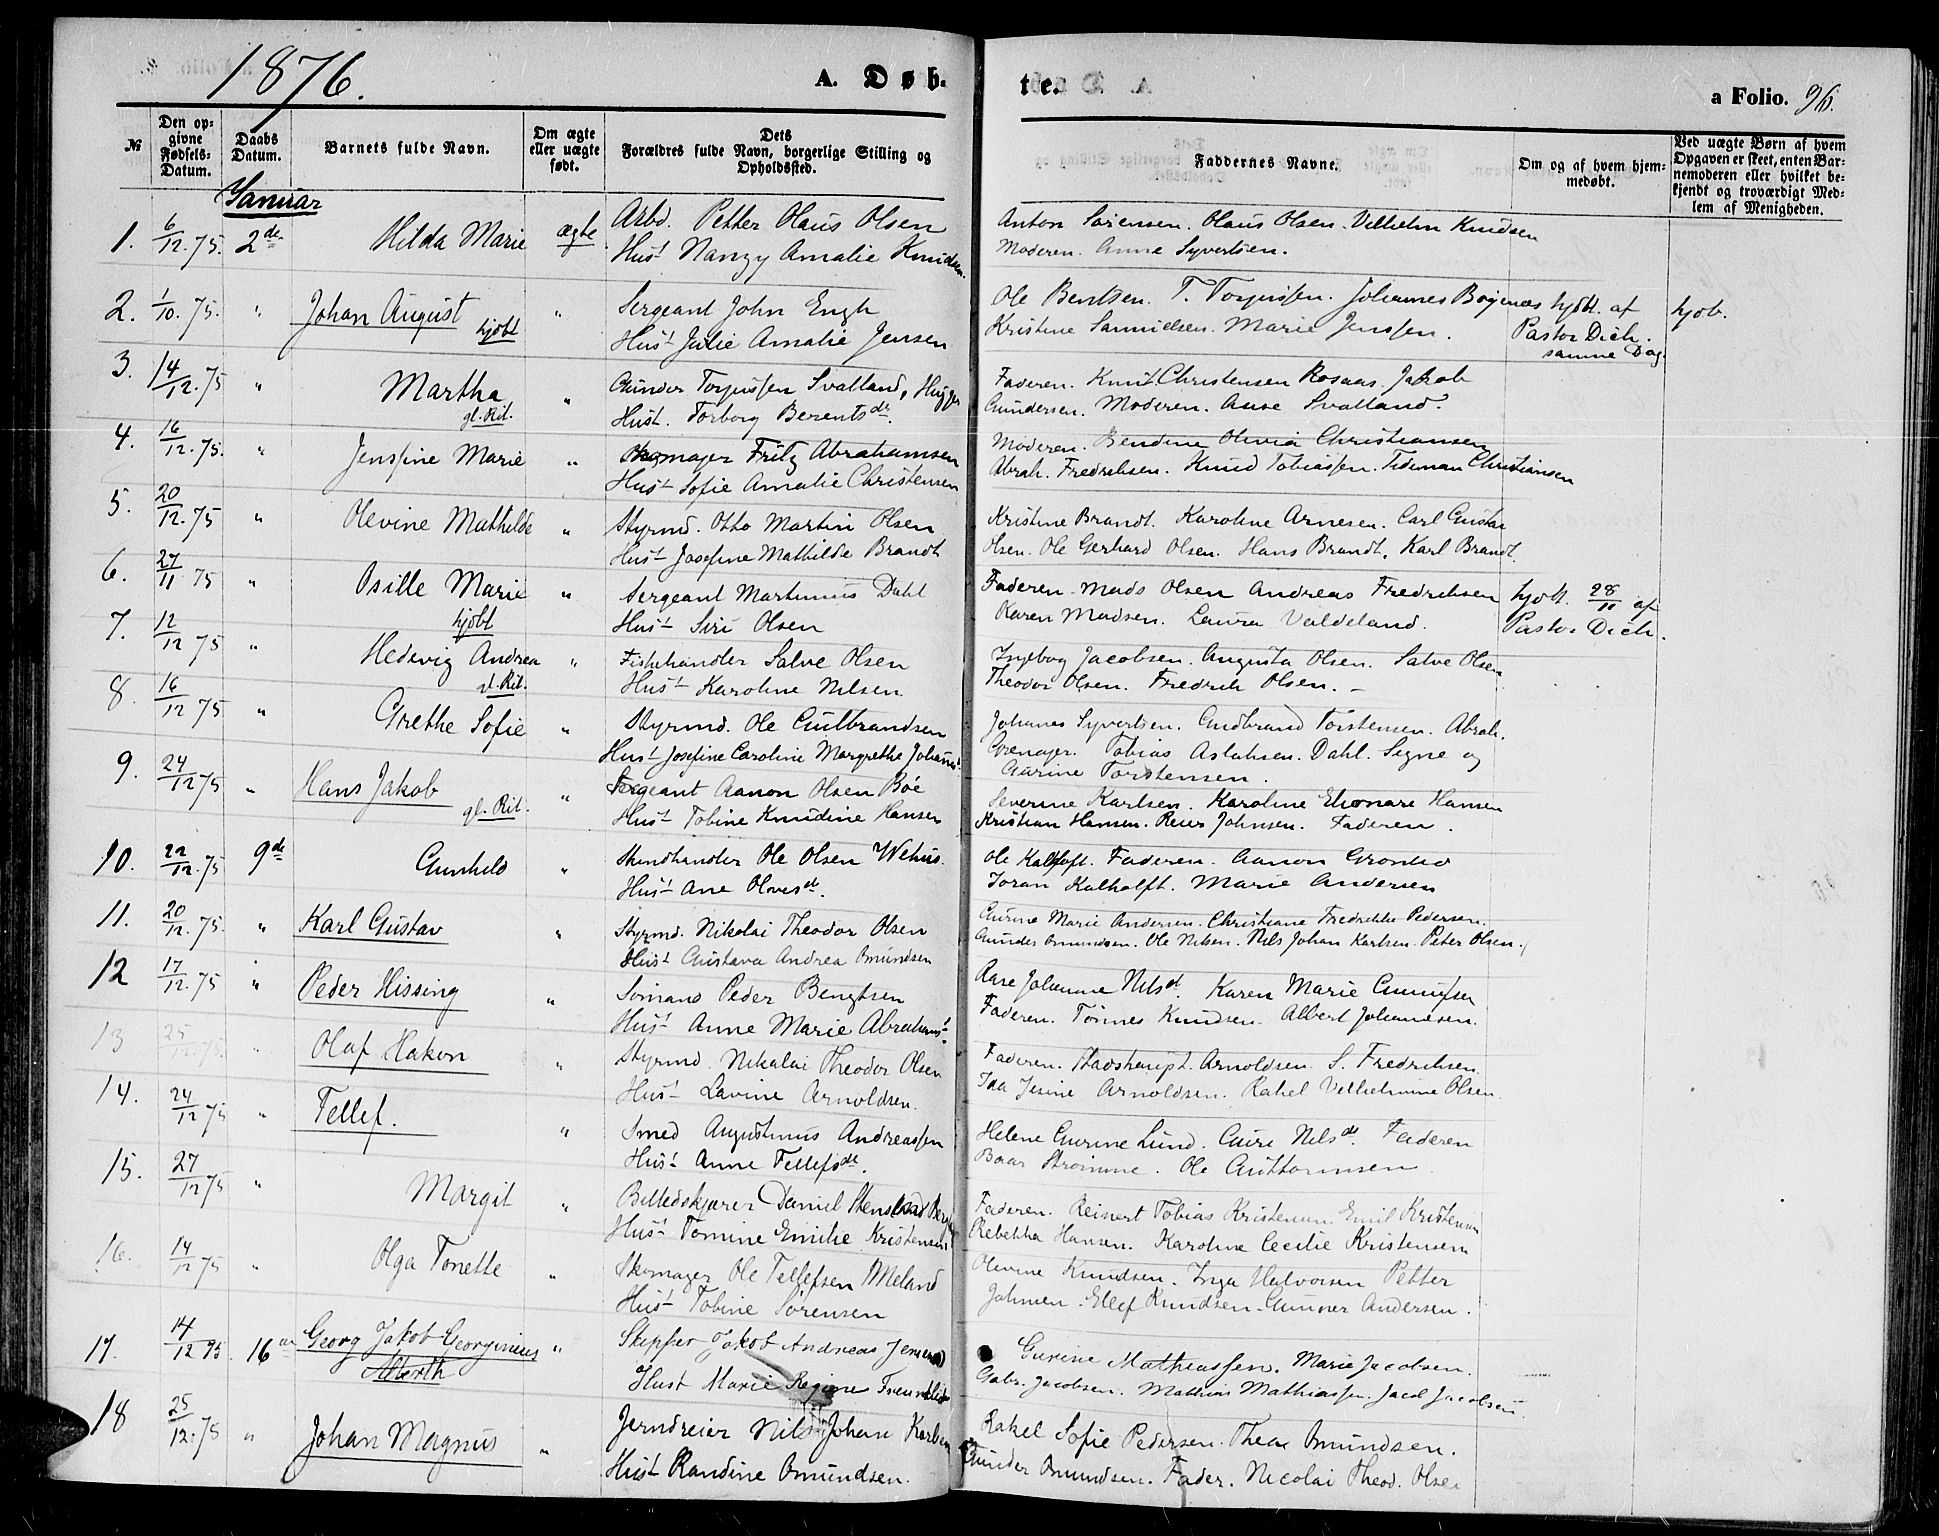 1876.
A. Døb-
te.
a Folio. 96.
№
Den op-
givne
Fødsels-
Datum.
Daabs
Datum.
Barnets fulde Navn.
Om ægte
eller uægte
født.
Dets
Forældres fulde Navn, borgerlige Stilling og
Opholdssted.
Faddernes Navne.
Om og af hvem hjem-
medøbt.
Ved uægte Børn af hvem
Opgaven er skeet, enten Bar-
nemoderen eller hvilket be-
kjendt og troværdigt Med-
lem af Menigheden.
Januar
1. 6/12.75. 2de Hilda Marie ægte Arbd. Petter Olaus Olsen
Hust Nanzy Amalie Knudsen.
Anton Sørensen. Olaus Olsen. Vilhelm Knudsen
Moderen. Anne Syvertsen.
2. 1/10.75. " Johan August hjdbt " Sergeant John Engh
Hust Julie Amalie Jensen
Ole Bentsen. T. Torjussen. Johannes Bøjenæs hjdbt. af
Kristine Samuelsen. Marie Jenssen. Pastor Dich.
samme Dag.
3. 14/12.75 " Martha gl. Rit. " Gunder Torjussen Svalland,
Hust. Torborg Berentsdr.
Faderen. Knut Christensen Rosaas. Jakob
Gundersen. Moderen. Aase Svalland.
4. 16/12.75. " Jensine Marie " Skomager Fritz Abrahamsen
Hust Sofie Amalie Christensen
Moderen. Bendine Olivia Christiansen
Abrah. Fredriksen. Knud Tobiassen. Tideman Christiansen
5. 20/12.75 " Olevine Mathilde " Styrmd. Otto Martin Olsen
Hust Josefine Mathilde Brandt
Kristine Brandt. Karoline Arnesen. Carl Gustav
Olsen. Ole Gerhard Olsen. Hans Brandt. Karl Brandt.
6. 27/11 75 " Osille Marie hjdbt " Sergeant Martinius Dahl
Hust Siri Olsen
Faderen. Mads Olsen Andreas Fredriksen hjdbt. 28/11 af
Karen Madsen. Laura Valdeland. Pastor Dich.
7. 12/12 75 " Hedevig Andrea gl. Rit. " Fiskehandler Salve Olsen
Hust Karoline Nilsen
Ingebog Jacobsen. Augusta Olsen. Salve Olsen
Theodor Olsen. Fredrik Olsen. –
8. 16/12 75 " Grethe Sofie " Styrmd. Ole Gulbrandsen
Hust Josefine Caroline Margrethe
Johanes Syvertsen. Gudbrand Torstensen. Abrah.
Tobias Aslaksen. Dahl. Signe og
Gurine Torstensen.
9. 24/12 75 " Hans Jakob gl. Rit. " Sergeant Aanon Olsen Bøe
Hust Tobine Knudine Hansen
Severine Karlsen. Karoline Elionare Hansen
Kristian Hansen. Reier Johnsen. Faderen.
10. 22/12.75 9de Gunhild " Skindhandler Ole Olsen Wehus.
Hust Ane Olvesdt.
Ole Kalhoft. Faderen. Aanon
Joran Kalholft. Marie Andersen
11. 20/12.75. " Karl Gustav " Styrmd. Nikolai Theodor Olsen
Hust Gustava Andrea Omundsen
Gurine Marie Andersen. Christiane Fredrikke Pedersen.
Gunder Omundsen. Ole Nilsen. Nils Johan Karlsen. Peter Olsen.
12 17/12.75 " Peder Hissing " Sømand Peder Bengtsen
Hust Anne Marie Abrahamst.
Aase Johanne Nilsdt. Karen Marie Gunufsen
Faderen. Tønnes Knudsen. Albert Johanesen.
13 25/12.75. " Olaf Hakon " Styrmd. Nikolai Theodor Olsen
Hust Lavine Arnoldsen.
Faderen. Arnoldsen. S. Fredriksen.
Ida Jesine Arnoldsen. Rakel Velhelmine Olsen.
14. 24/12 75 " Tellef. " Smed Augustinus Andreassen
Hust Anne Tellefsdt.
Helene Gurine Lund. Guri Nilsdt. Faderen
Baar Strømme. Ole Guttormsen
15. 27/12 75 " Margit " Billedskjærer Daniel
Hust Tomine Emilie Kristensen
Faderen. Reinert Tobias Kristensen. Emil Kristensen
Rebekka Hansen. Karoline Cecilie Kristensen
16. 14/12 75 " Olga Tonette " Skomager Ole Tellefsen Meland
Hust Tobine Sørensen
Olevine Knudsen. Inga Halvorsen Petter
Johnsen. Ellef Knudsen. Gunner Andersen.
17. 14/12 75. 16de Georg Jakob Georginius Alberth " Skipper Jakob Andreas Jensen
Hust Marie Regine
Gurine Mathiassen. Marie Jacobsen.
Gabr. Jacobsen. Mathias Mathiassen. Jacob Jacobsen.
18 25/12.75 " Johan Magnus " Jerndreier Nils Johan Karlsen
Hust Randine Omundsen.
Rakel Sofie Pedersen. Thea Omundsen.
Gunder Omundsen. Fader. Nicolai Theod. Olsen
hjdb.